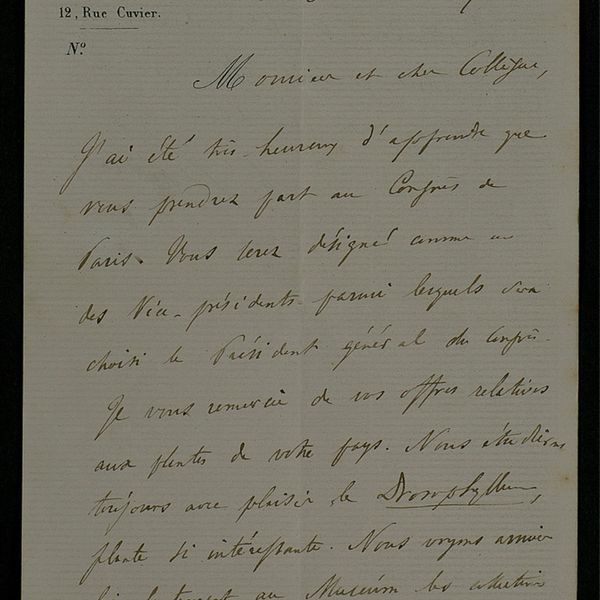 12, Rue Cuvier.
Nº
Monsieur et cher Collègue,
J'ai été très heureux d'apprendre que
vous prendrez part au Congrès de
Paris. Vous serez désigné comme un
des Vice-présidents parmi lesquels sera
choisi le Président général du Congrès.
Je vous remercie de vos offres relatives
aux plantes de votre pays. Nous étudierons
toujours avec plaisir le Drosophyllum,
plante si intéressante. Nous voyons arriver
au Muséum les